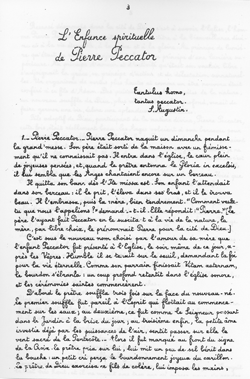 L'Enfance spirituelle
de Pierre Peccator
Tantulus homo,
tantus peccator.
S. Augustin.
1_ Pierre Peccator... Pierre Peccator naquit un dimanche pendant
la grand'messe. Son père était sorti de la maison avec un frémisse-
ment qu'il ne connaissait pas. Il entra dans l'église, le cœur plein
de joyeuses pensées, et, quand le prêtre entonna le Gloria in excelsis,
il lui sembla que les Anges chantaient encore sur un berceau.
Il quitta son banc dès l'Ite missa est. Son enfant l'attendait
dans son berceau : il le prit, l'éleva dans ses bras, et il le trouva
beau. Il l'embrassa, puis la mère, bien tendrement. "Comment veux-
tu que nous l'appelions ?" demanda-t-il. Elle répondit : "Pierre." [Le
père l'ayant fait Peccator en le
mère, par libre choix, le prénommait Pierre pour la cité de Dieu.]
C'est sous le nouveau nom choisi par l'amour de sa mère que
l'enfant Peccator fut présenté à l'Église, le soir même de ce jour, a-
près les Vêpres. Humble il se tenait sur le seuil, demandant la foi
pour la vie éternelle. Comme son parrain finissait
le bourdon s'ébranla : un coup profond retentit dans l'église sonore,
et les cérémonies saintes commencèrent.
D'abord le prêtre souffla trois fois sur la face du nouveau-né.
Le premier souffle fut pareil à l'Esprit qui flottait au commence-
ment sur les eaux ; au deuxième, ce fut comme le Seigneur, passant
dans le Jardin à la brise du jour ; au troisième enfin, la petite âme
investie déjà par les puissances de l'air, sentit passer sur elle le
vent sacré de la Pentecôte. Alors il fut marqué au front du signe
de la Croix. Le prêtre pria sur lui, lui mit un peu de sel bénit dans
la bouche : un petit cri perça le bourdonnement joyeux du carillon.
Le prêtre de Dieu exorcisa ce fils de colère, lui imposa les mains,